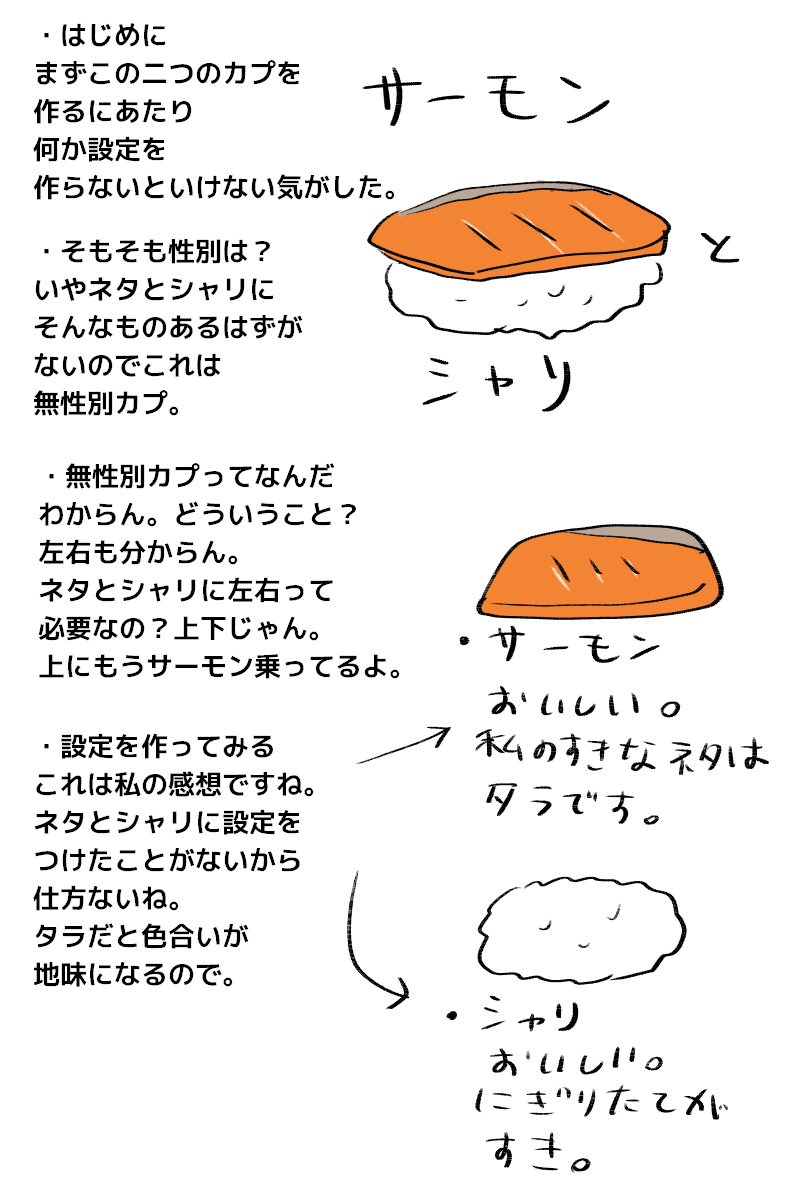 ・はじめに
まずこの二つのカプを
作るにあたり
何か設定を
作らないといけない気がした。
サーモン
と
シャリ
・そもそも性別は？
いやネタとシャリに
そんなものあるはずが
ないのでこれは
無性別カプ。
・無性別カプってなんだ
わからん。どういうこと？
左右も分からん。
ネタとシャリに左右って
必要なの？上下じゃん。
上にもうサーモン乗ってるよ。
・設定を作ってみる
これは私の感想ですね。
ネタとシャリに設定を
つけたことがないから
仕方ないね。
タラだと色合いが
地味になるので。
・サーモン
おいしい。
私のすきなネタは
タラです。
・シャリ
おいしい。
にぎりたてが
すき。